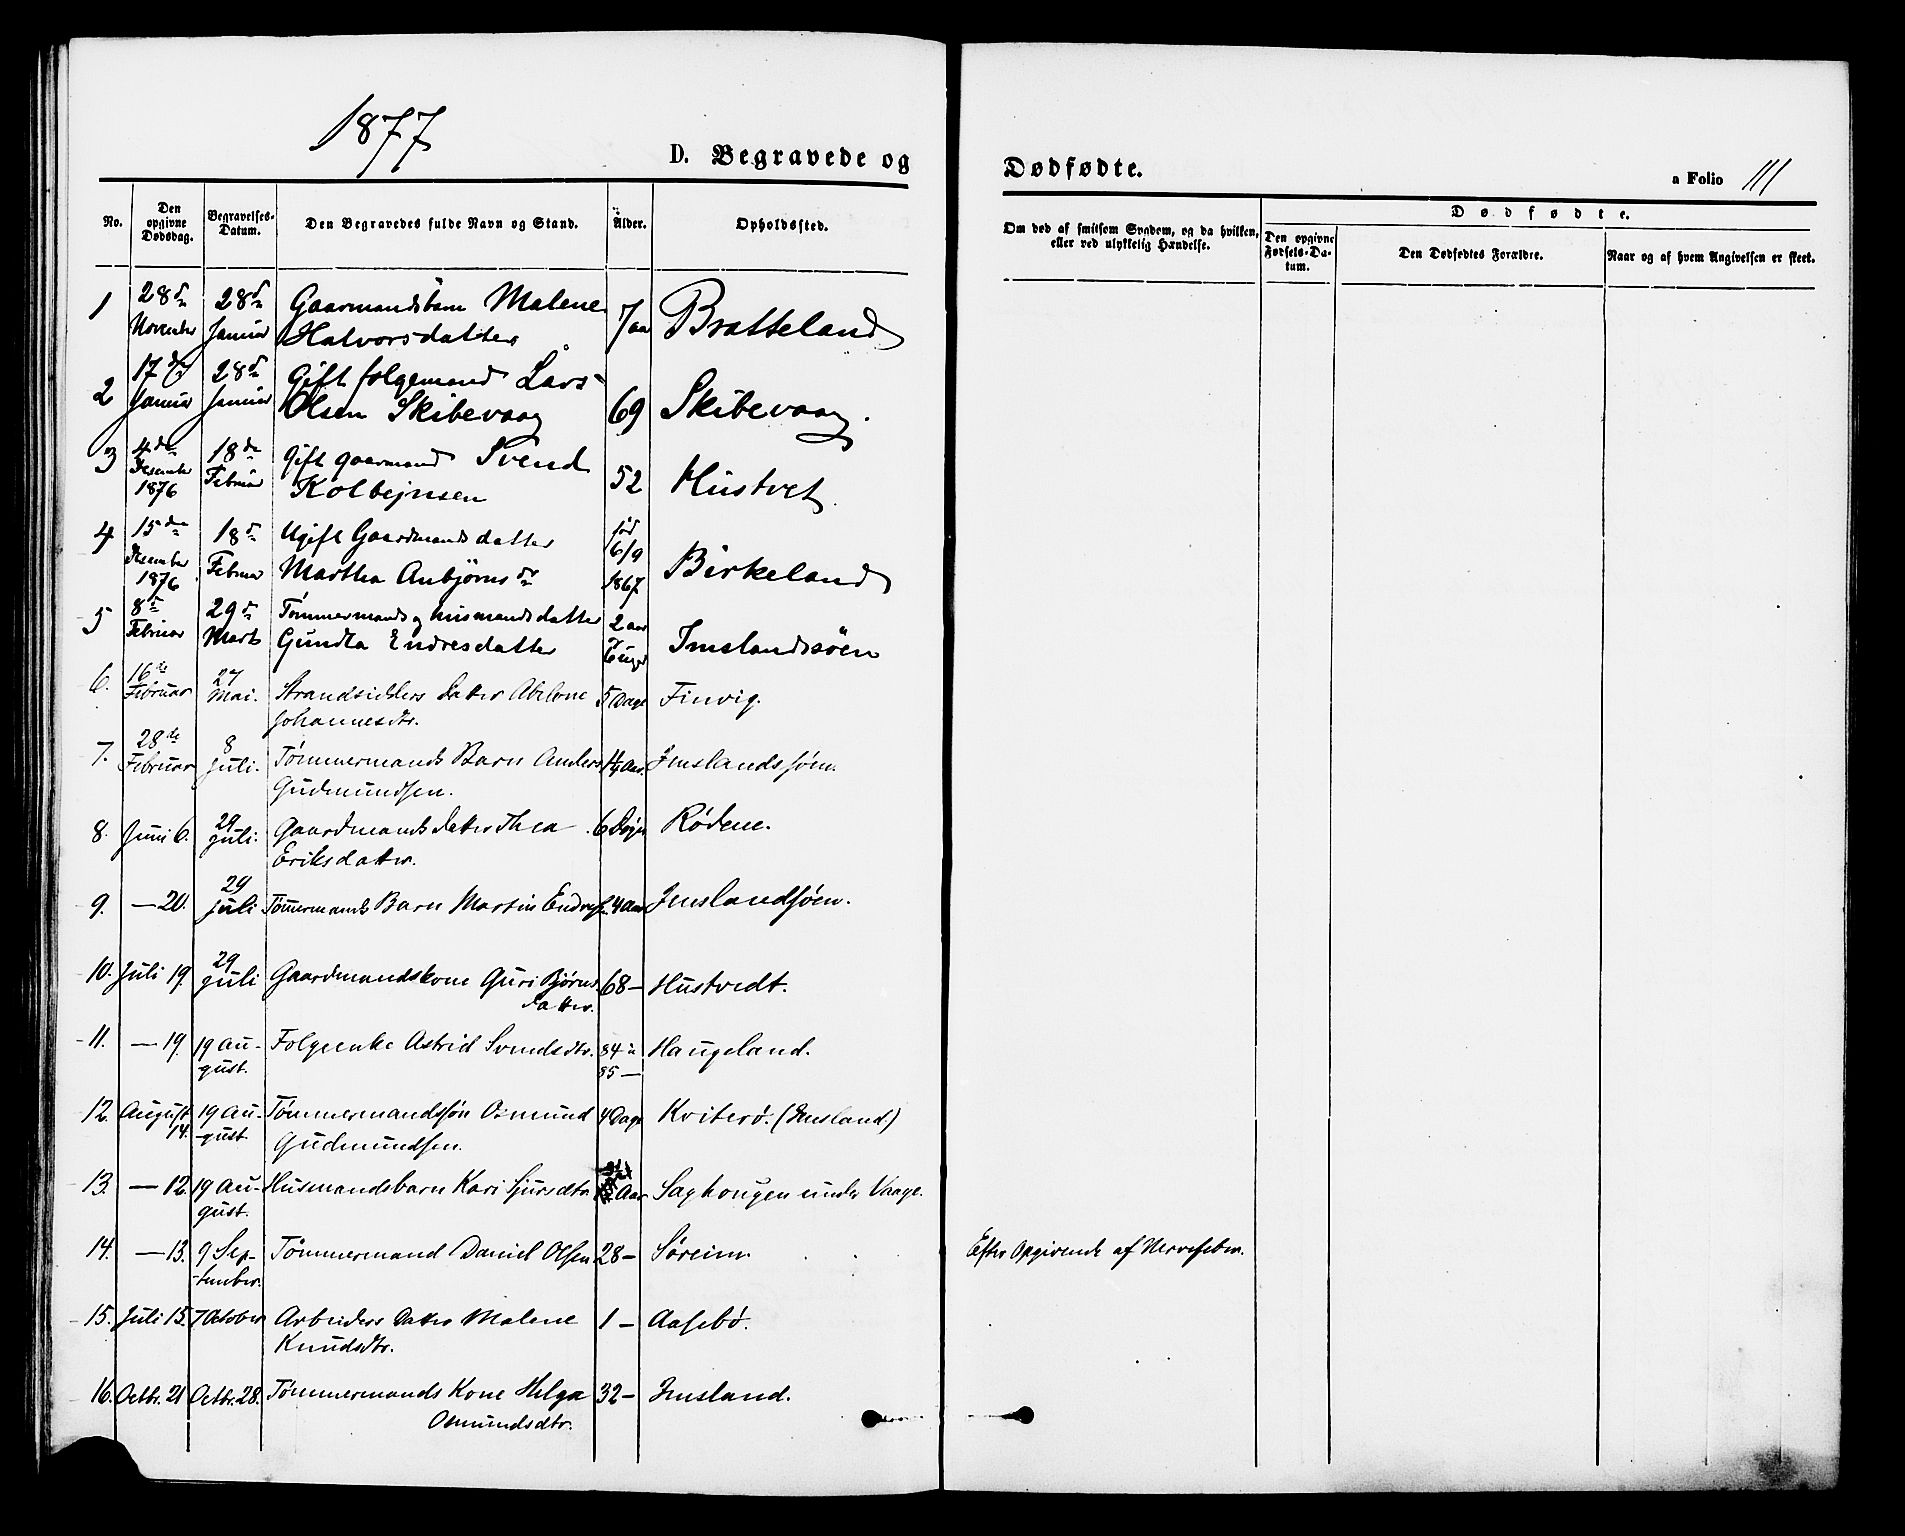 1877
D. Begravede og
Dødfødte.
a Folio 111
No.
Den opgivne Dødsdag.
Begravelses-Datum.
Den Begravedes fulde Navn og Stand.
Alder.
Opholdssted.
Om død af smitsom Sygdom, og da hvilken, eller ved ulykkelig Hændelse.
Dødfødte.
Den opgivne Fødsels-Datum.
Den Dødfødtes Forældre.
Naar og af hvem Angivelsen er skeet.
1 28de November 28de Januar Gaarmandsbarn Malene Halvorsdatter 7 aar Bratteland
2 17de Januar 28de Januar Gift folgemand Lars Olsen Skibevaag 69 Skibevaag.
3 4de Desember 1876 18de Februar Gift gaarmand Svend Kolbejnsen 52 Hustvet
4 15de Desember 1876 18de Februar Ugift Gaardmandsdatter Martha Anbjørnsdr 1867 Birkeland
5 8de Februar 29de Marts Tømmermands og husmandsdatter Gundla Endresdatter 2 aar 7 Imslandssöen
6. 16de Februar 27 Mai. Strandsidders Datter Abelone Johannesdtr. 5 Dage Finvig.
7. 28de Februar 8 Juli. Tømmermands Barn Anders Gudmundsen. Aar. Imslandssøen.
8. Juni 6. 29 Juli. Gaardmands Datter Thea Eriksdatter. 6 Døgn Rødene.
9. — 20. 29 Juli Tømmermands Barn Martin Endres. 4 Aar Imslandsøen.
10. Juli 19. 29 Juli Gaardmandskone Guri Bjørnsdatter. 68 — Hustvedt.
11. — 19. 19 August. Folgeenke Astrid Svendsdtr. 84 a 85 — Haugeland.
12. August 14. 19 August. Tømmermandssøn Osmund Gudmundsen. 4 Dage Kviterø. (Imsland)
13. — 12. 19 August. Husmandsbarn Kari Sjursdtr. Aar Saghougen under Vaage.
14. — 13. 9 September. Tømmermand Daniel Olsen. 28 — Søreim. Efter Opgivende af Nervefeber.
15. Juli 15. 7 October Arbeiders Datter Malene Knudsdtr. 1 — Aasebø.
16. Octbr. 21 Octbr. 28. Tømmermands Kone Helga Osmundsdtr. 32 — Imsland.